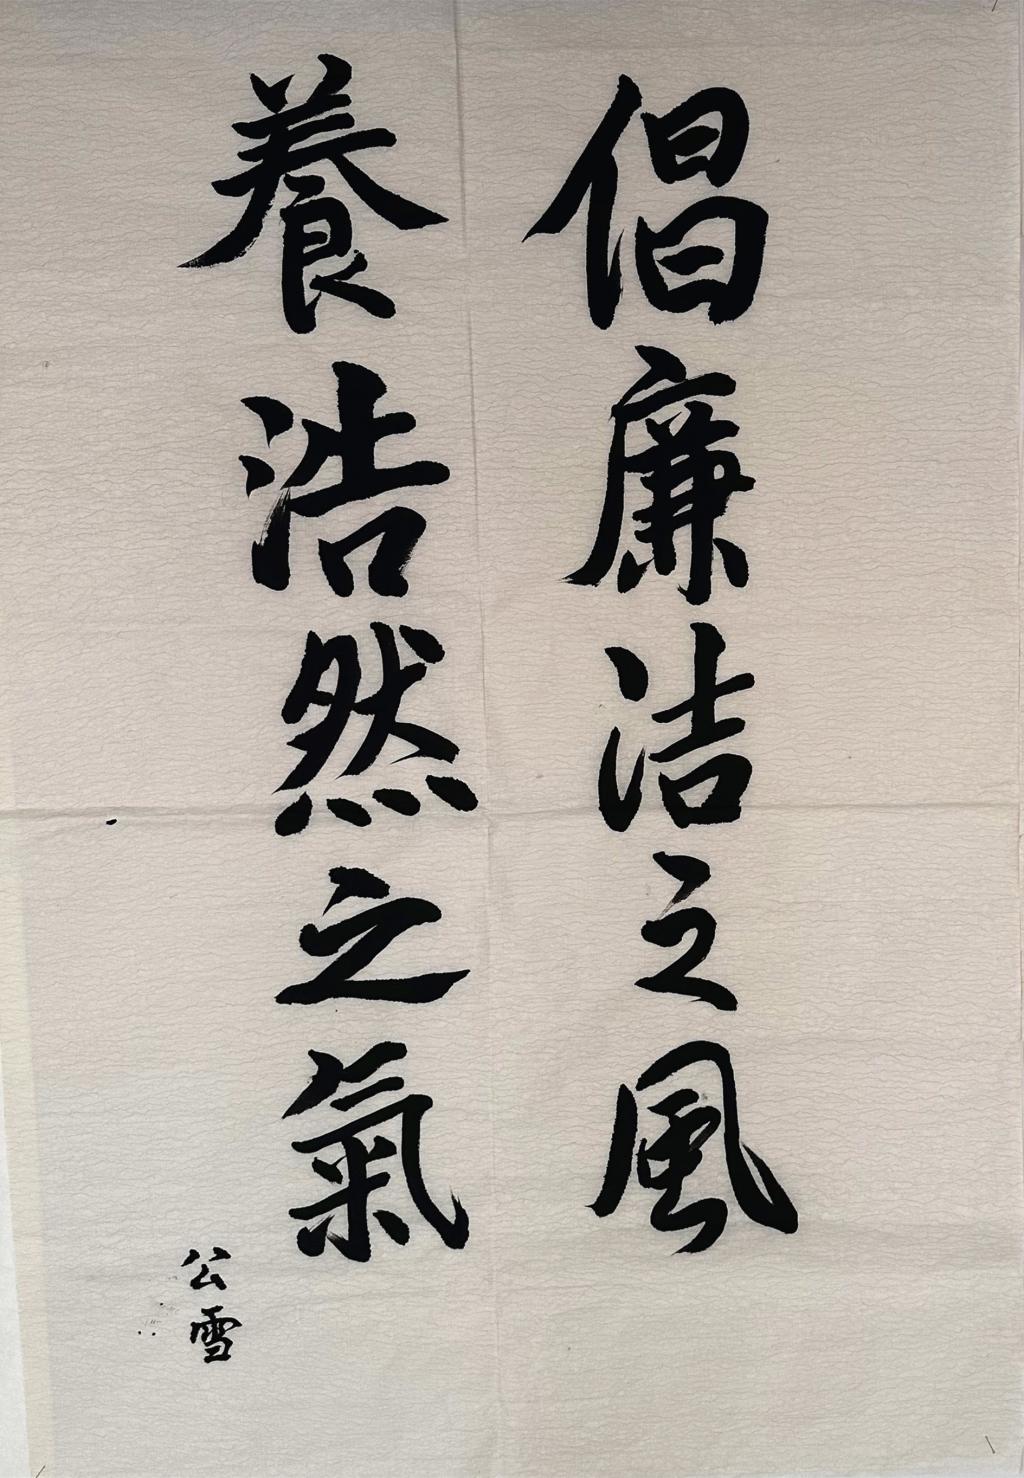 倡廉洁之風
養浩然之氣
公雪